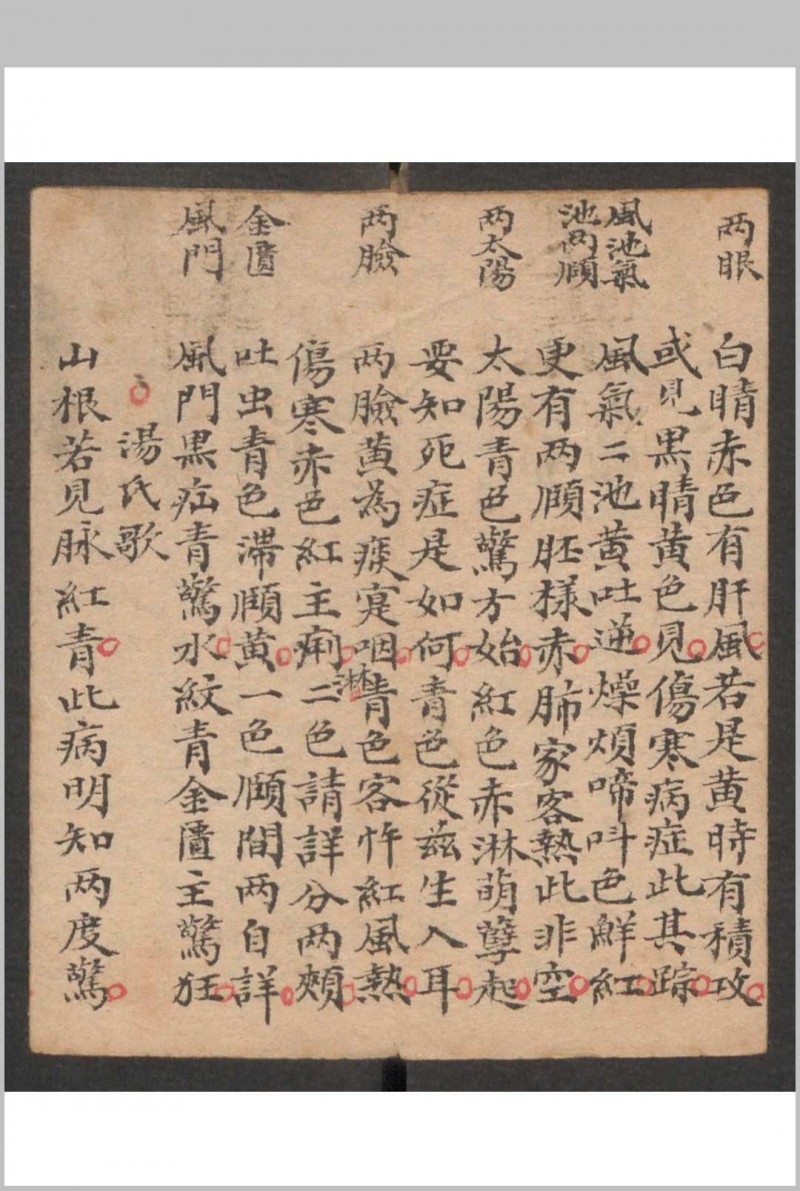 两眼
風池氣
池两頤
两太陽
两臉
金匱
風門
白睛赤色有肝風若是黄時有積攻
或見黒睛黄色見傷寒病症此其踪
風氣二池黄吐逆燥煩啼呌色鮮紅
更有两頤胚様赤肺家客熱此非空
太陽青色驚方始紅色赤淋萌孽起
要知死症是如何青色從兹生入耳
两臉黄為痰寔咽青色客忤紅風熱
傷寒赤色紅主痢二色請詳分两頰
淋
吐虫青色滞頤黄一色頤間两自詳
風門黒疝青驚水紋青金匱主驚狂
湯氏歌
山根若見脉紅青此病明知两度驚